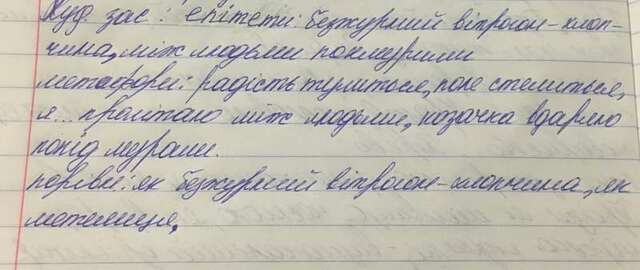 Худ зас: епітети: безжурний вітрогон-хлоп-
чина, між людьми похмурими
метафори: радість тулиться, поле стелиться,
я... пролітаю між людьми, козачка вдаряю
попід мурами.
порівн: як безжурний вітрогон-хлопчина, як
метелиця.